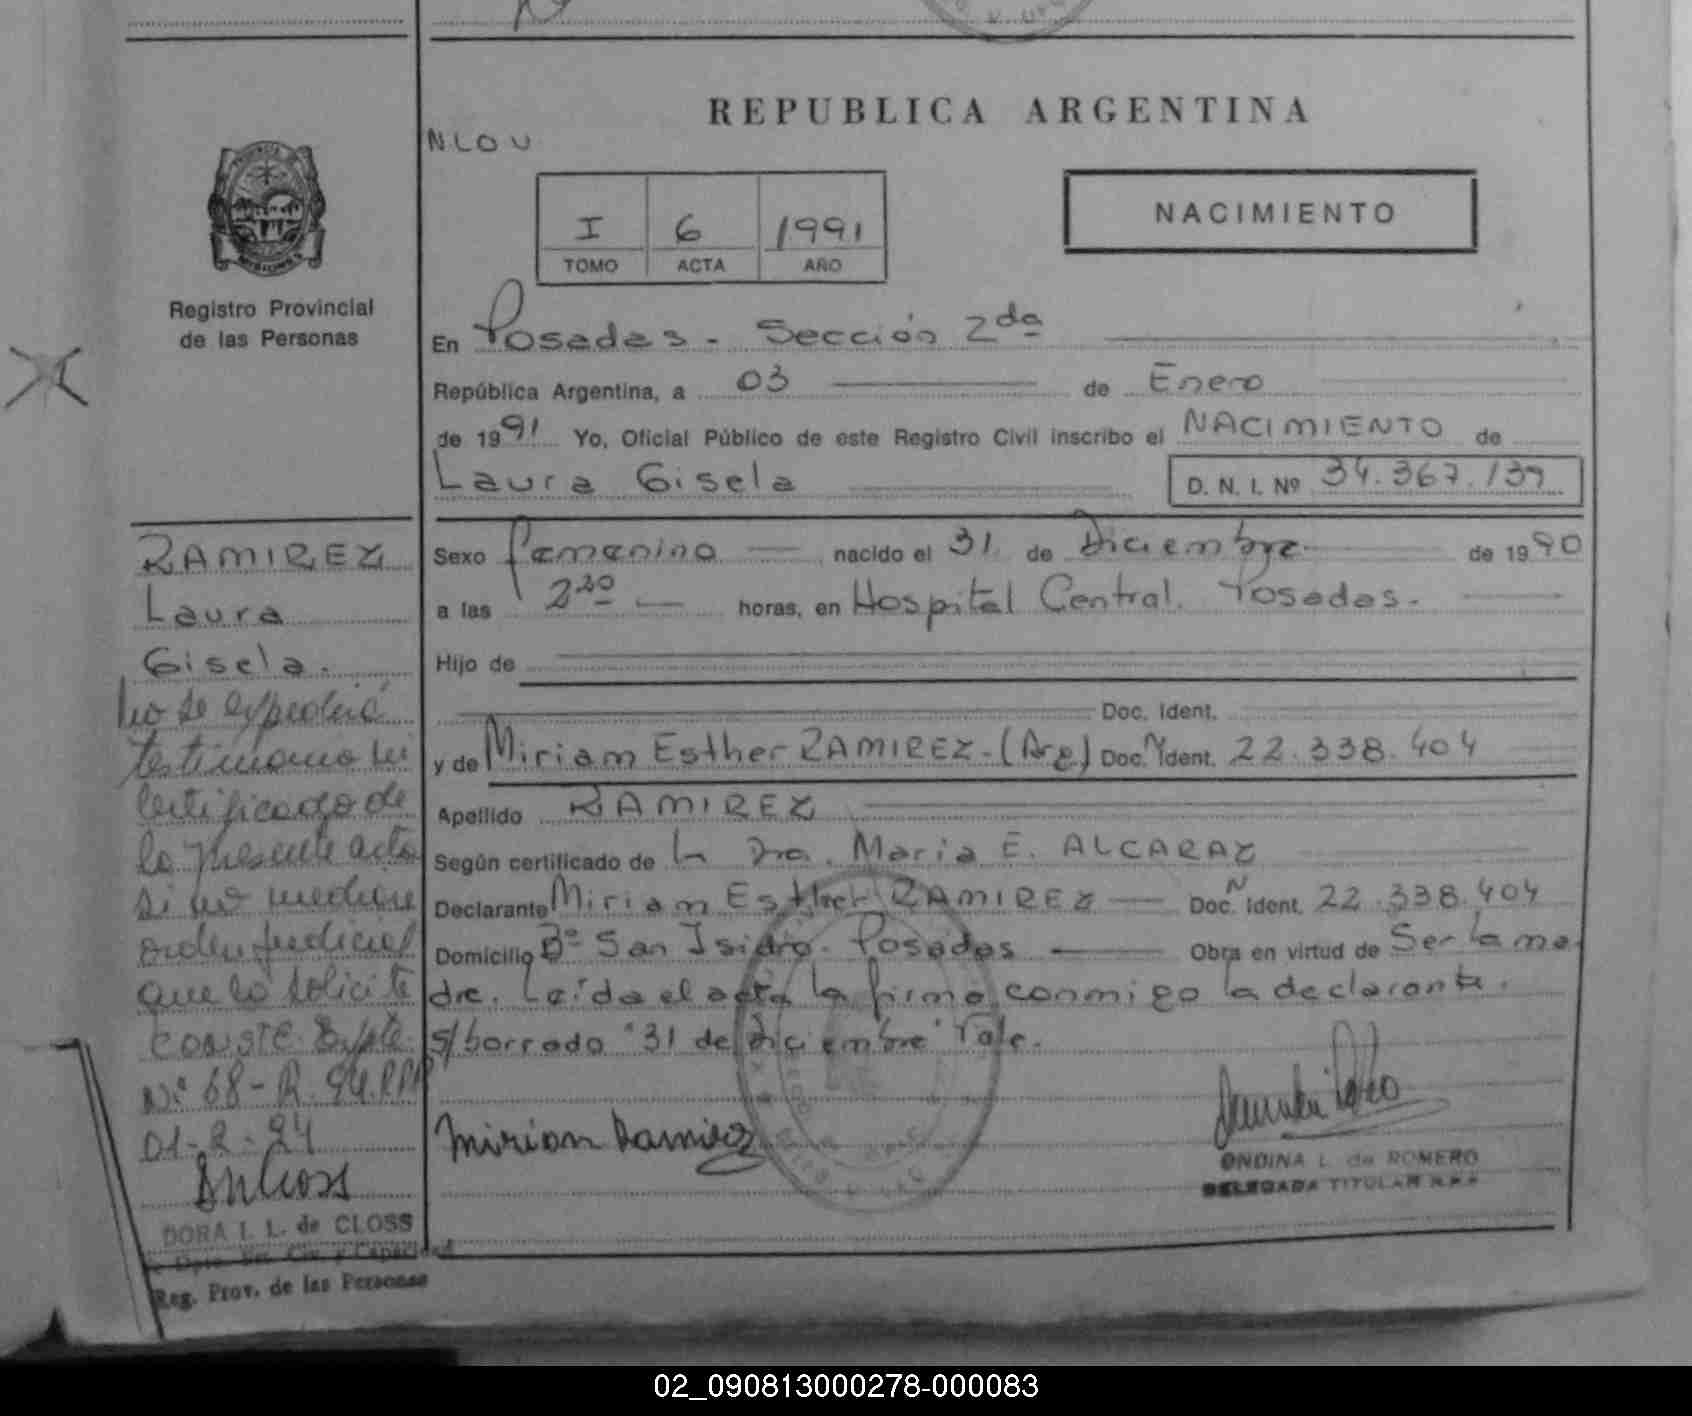 REPUBLICA ARGENTINA
NLOU
I 6 1991
TOMO ACTA AÑO
NACIMIENTO
Registro Provincial
de las Personas
En Posadas - Sección 2da
República Argentina, a 03 de Enero
de 1991 Yo, Oficial Público de este Registro Civil inscribo el NACIMIENTO de
Laura Gisela D. N. I. Nº 34.367.139
Sexo femenino nacido el 31 de Diciembre de 1990
a las 2 30 horas, en Hospital Central. Posadas.
Hijo de
Doc. Ident.
y de Miriam Esther RAMIREZ - (Arg) Doc. N Ident. 22.338.404
Apellido RAMIREZ
Según certificado de la Dra. Maria E. ALCARAZ
Declarante Miriam Esther RAMIREZ Doc. N Ident. 22.338.404
Domicilio Bº San Isidro. Posadas Obra en virtud de Ser la ma
dre. Leída el acta la firma conmigo la declarante.
s/borrado "31 de Diciembre" Vale.
Mirian Ramirez
ONDINA L. de ROMERO
DELEGADA TITULAR R.P.P.
RAMIREZ
Laura
Gisela.
No se expedirá
testimonio ni
certificado de
la presente acta
si no mediare
orden judicial
que lo solicite
conste. Expte.
Nº 68-R. 94. RPP
01-2-94
DORA I. L. de CLOSS
Reg. Prov. de las Personas
02_090813000278-000083